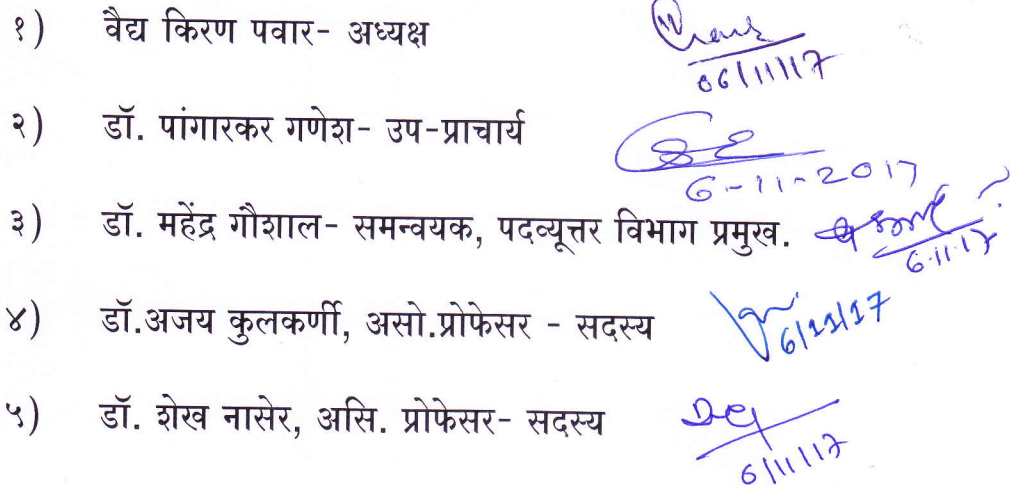 १) वैद्य किरण पवार- अध्यक्ष
06/11/17
२) डॉ. पांगारकर गणेश- उप-प्राचार्य
6-11-2017
३) डॉ. महेंद्र गौशाल- समन्वयक, पदव्यूत्तर विभाग प्रमुख.
6.11.17
४) डॉ.अजय कुलकर्णी, असो.प्रोफेसर - सदस्य
6/11/17
५) डॉ. शेख नासेर, असि. प्रोफेसर- सदस्य
6/11/17